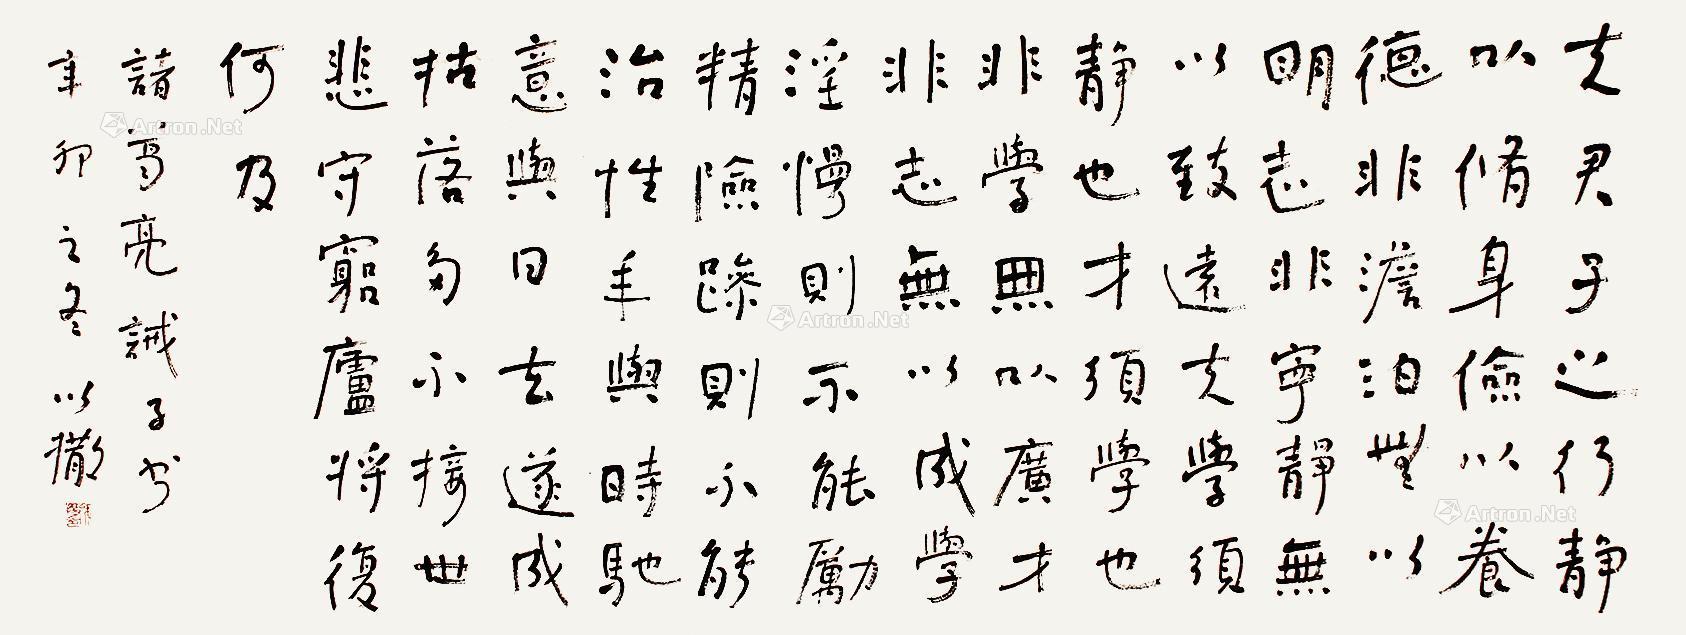 夫君子之行静
以脩身儉以養
德非澹泊無以
明志非寧静無
以致遠夫學須
静也才須学也
非學無以廣才
非志無以成學
淫慢則不能勵
精險躁則不能
治性年與時馳
意與日去遂成
枯落多不接世
悲守窮廬將復
何及
諸葛亮誡子书
辛卯之冬以
Artron.Net
Artron.Net
Artron.Net